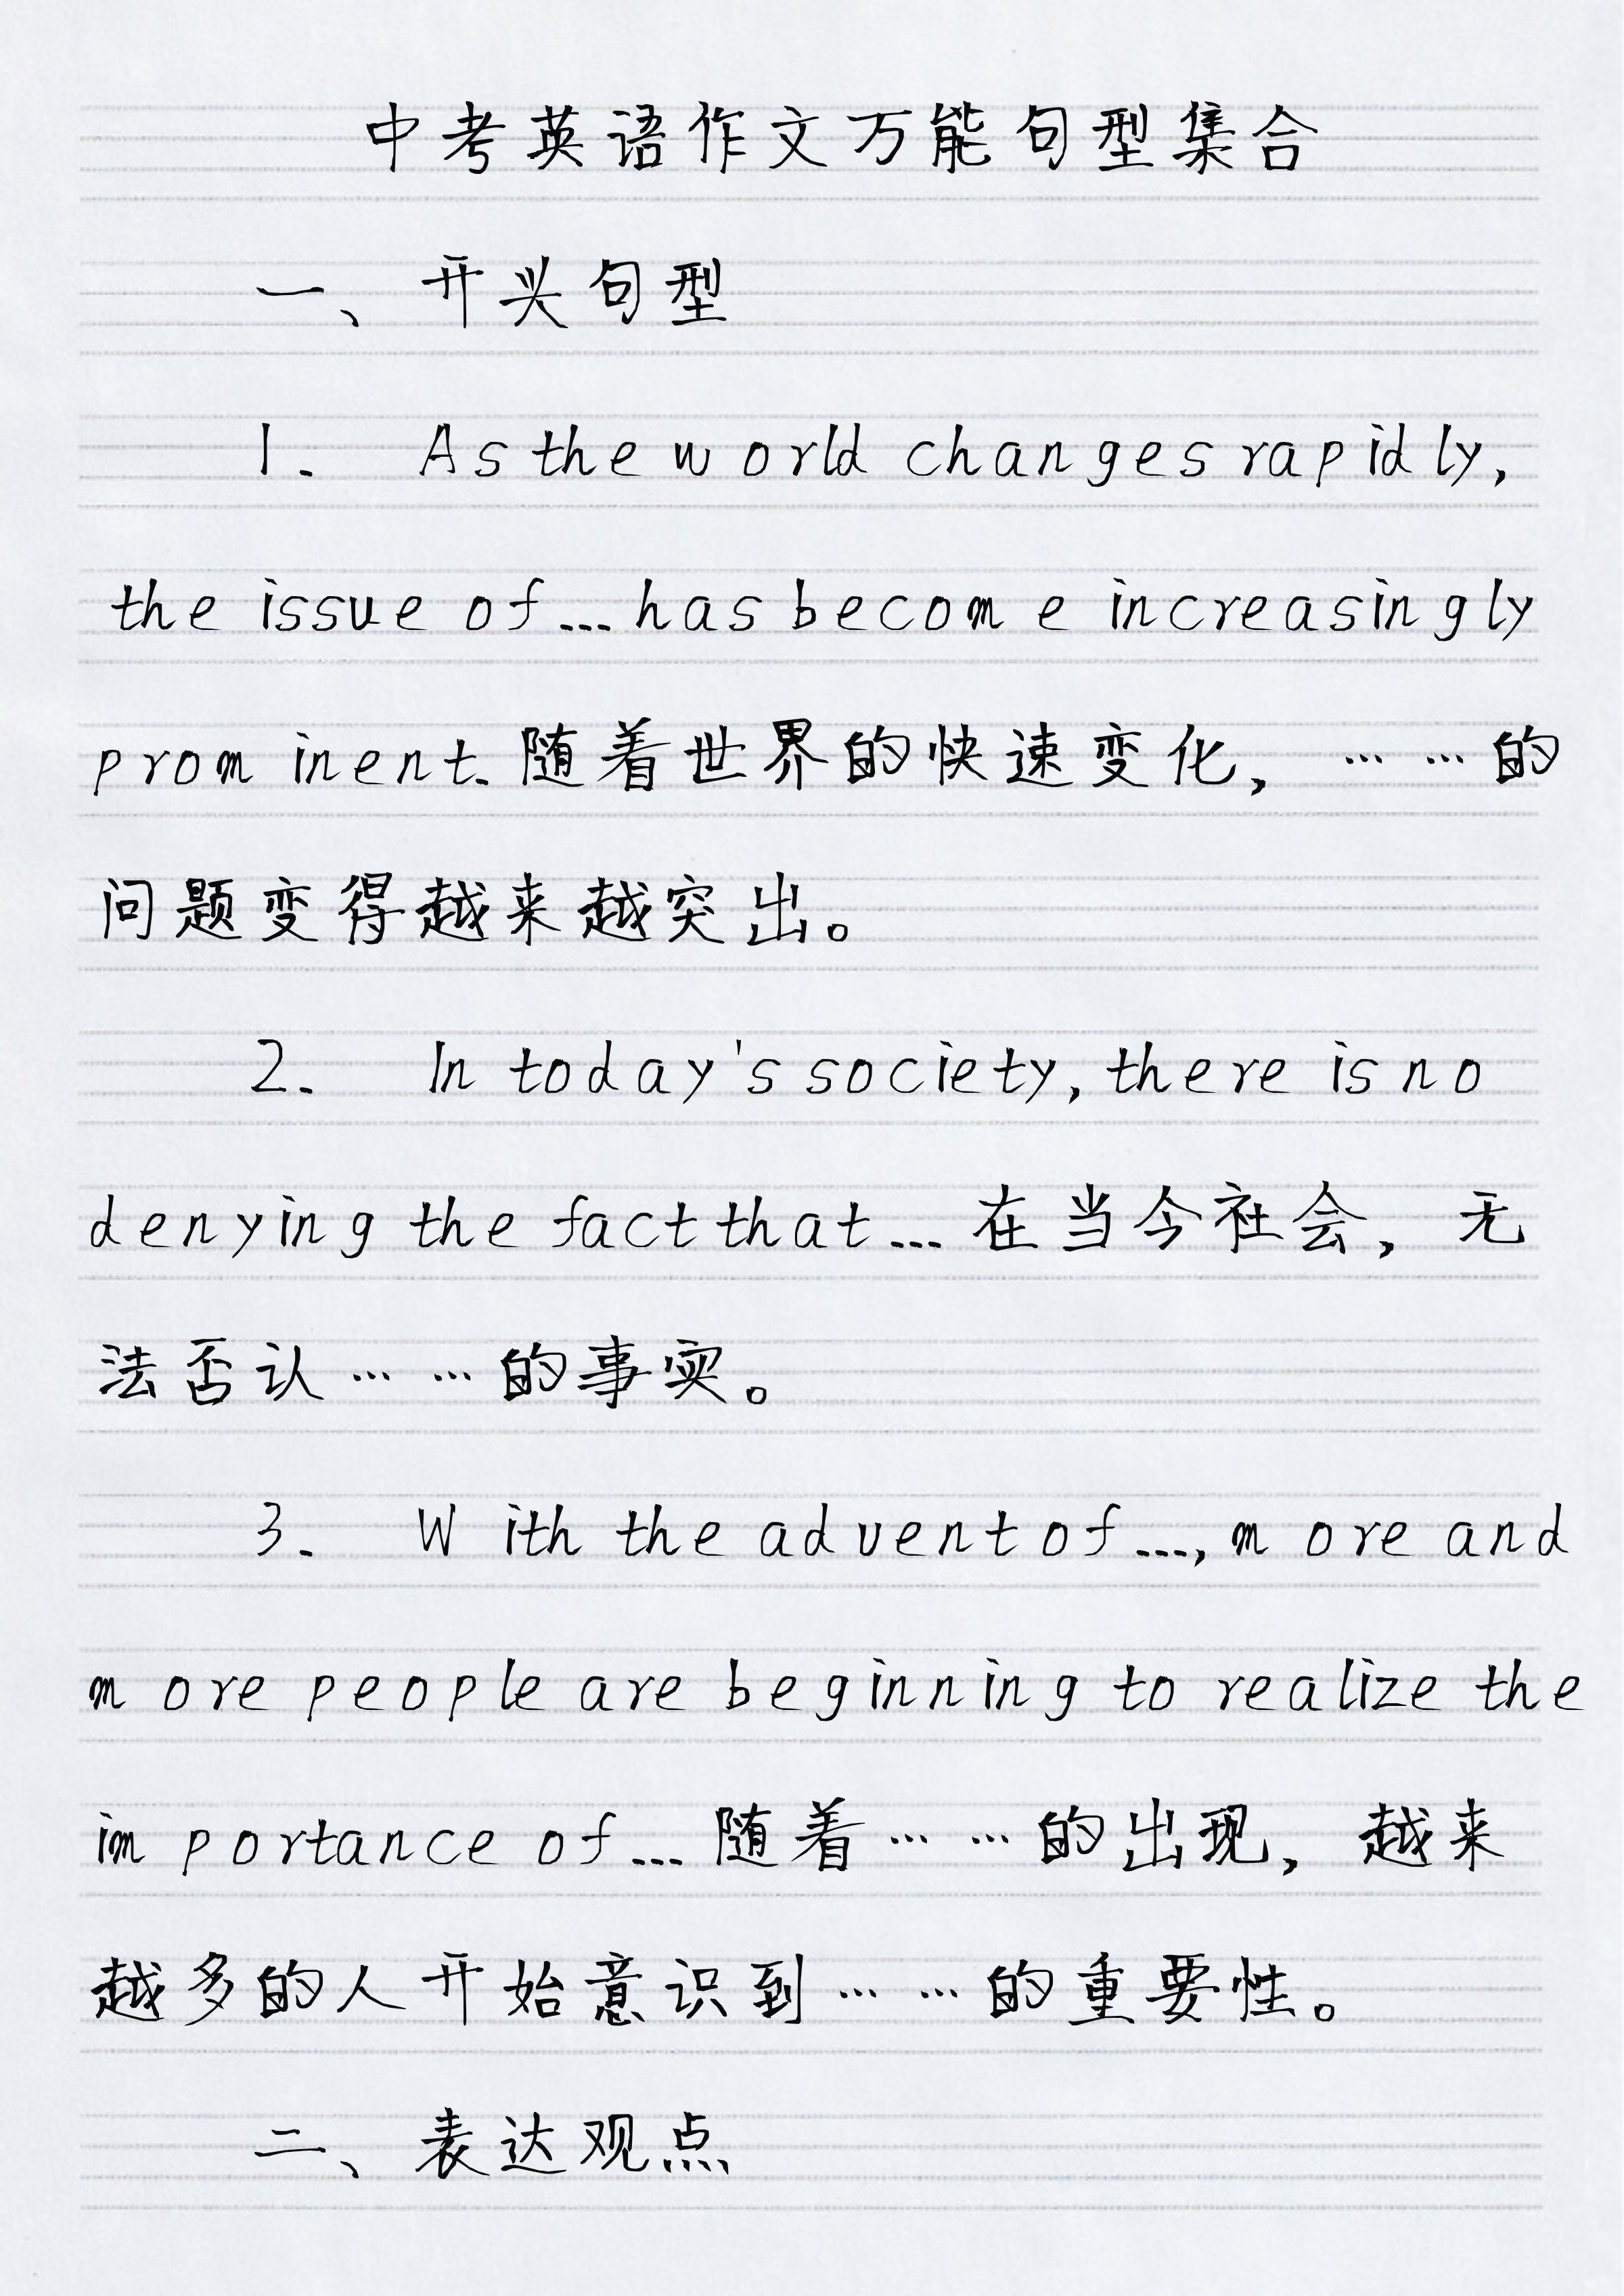 中考英语作文万能句型集合
一、开头句型
1. As the world changes rapidly,
the issue of... has become increasingly
prominent. 随着世界的快速变化，……的
问题变得越来越突出。
2. In today's society, there is no
denying the fact that... 在当今社会，无
法否认……的事实。
3. With the advent of..., more and
more people are beginning to realize the
importance of... 随着……的出现，越来
越多的人开始意识到……的重要性。
二、表达观点